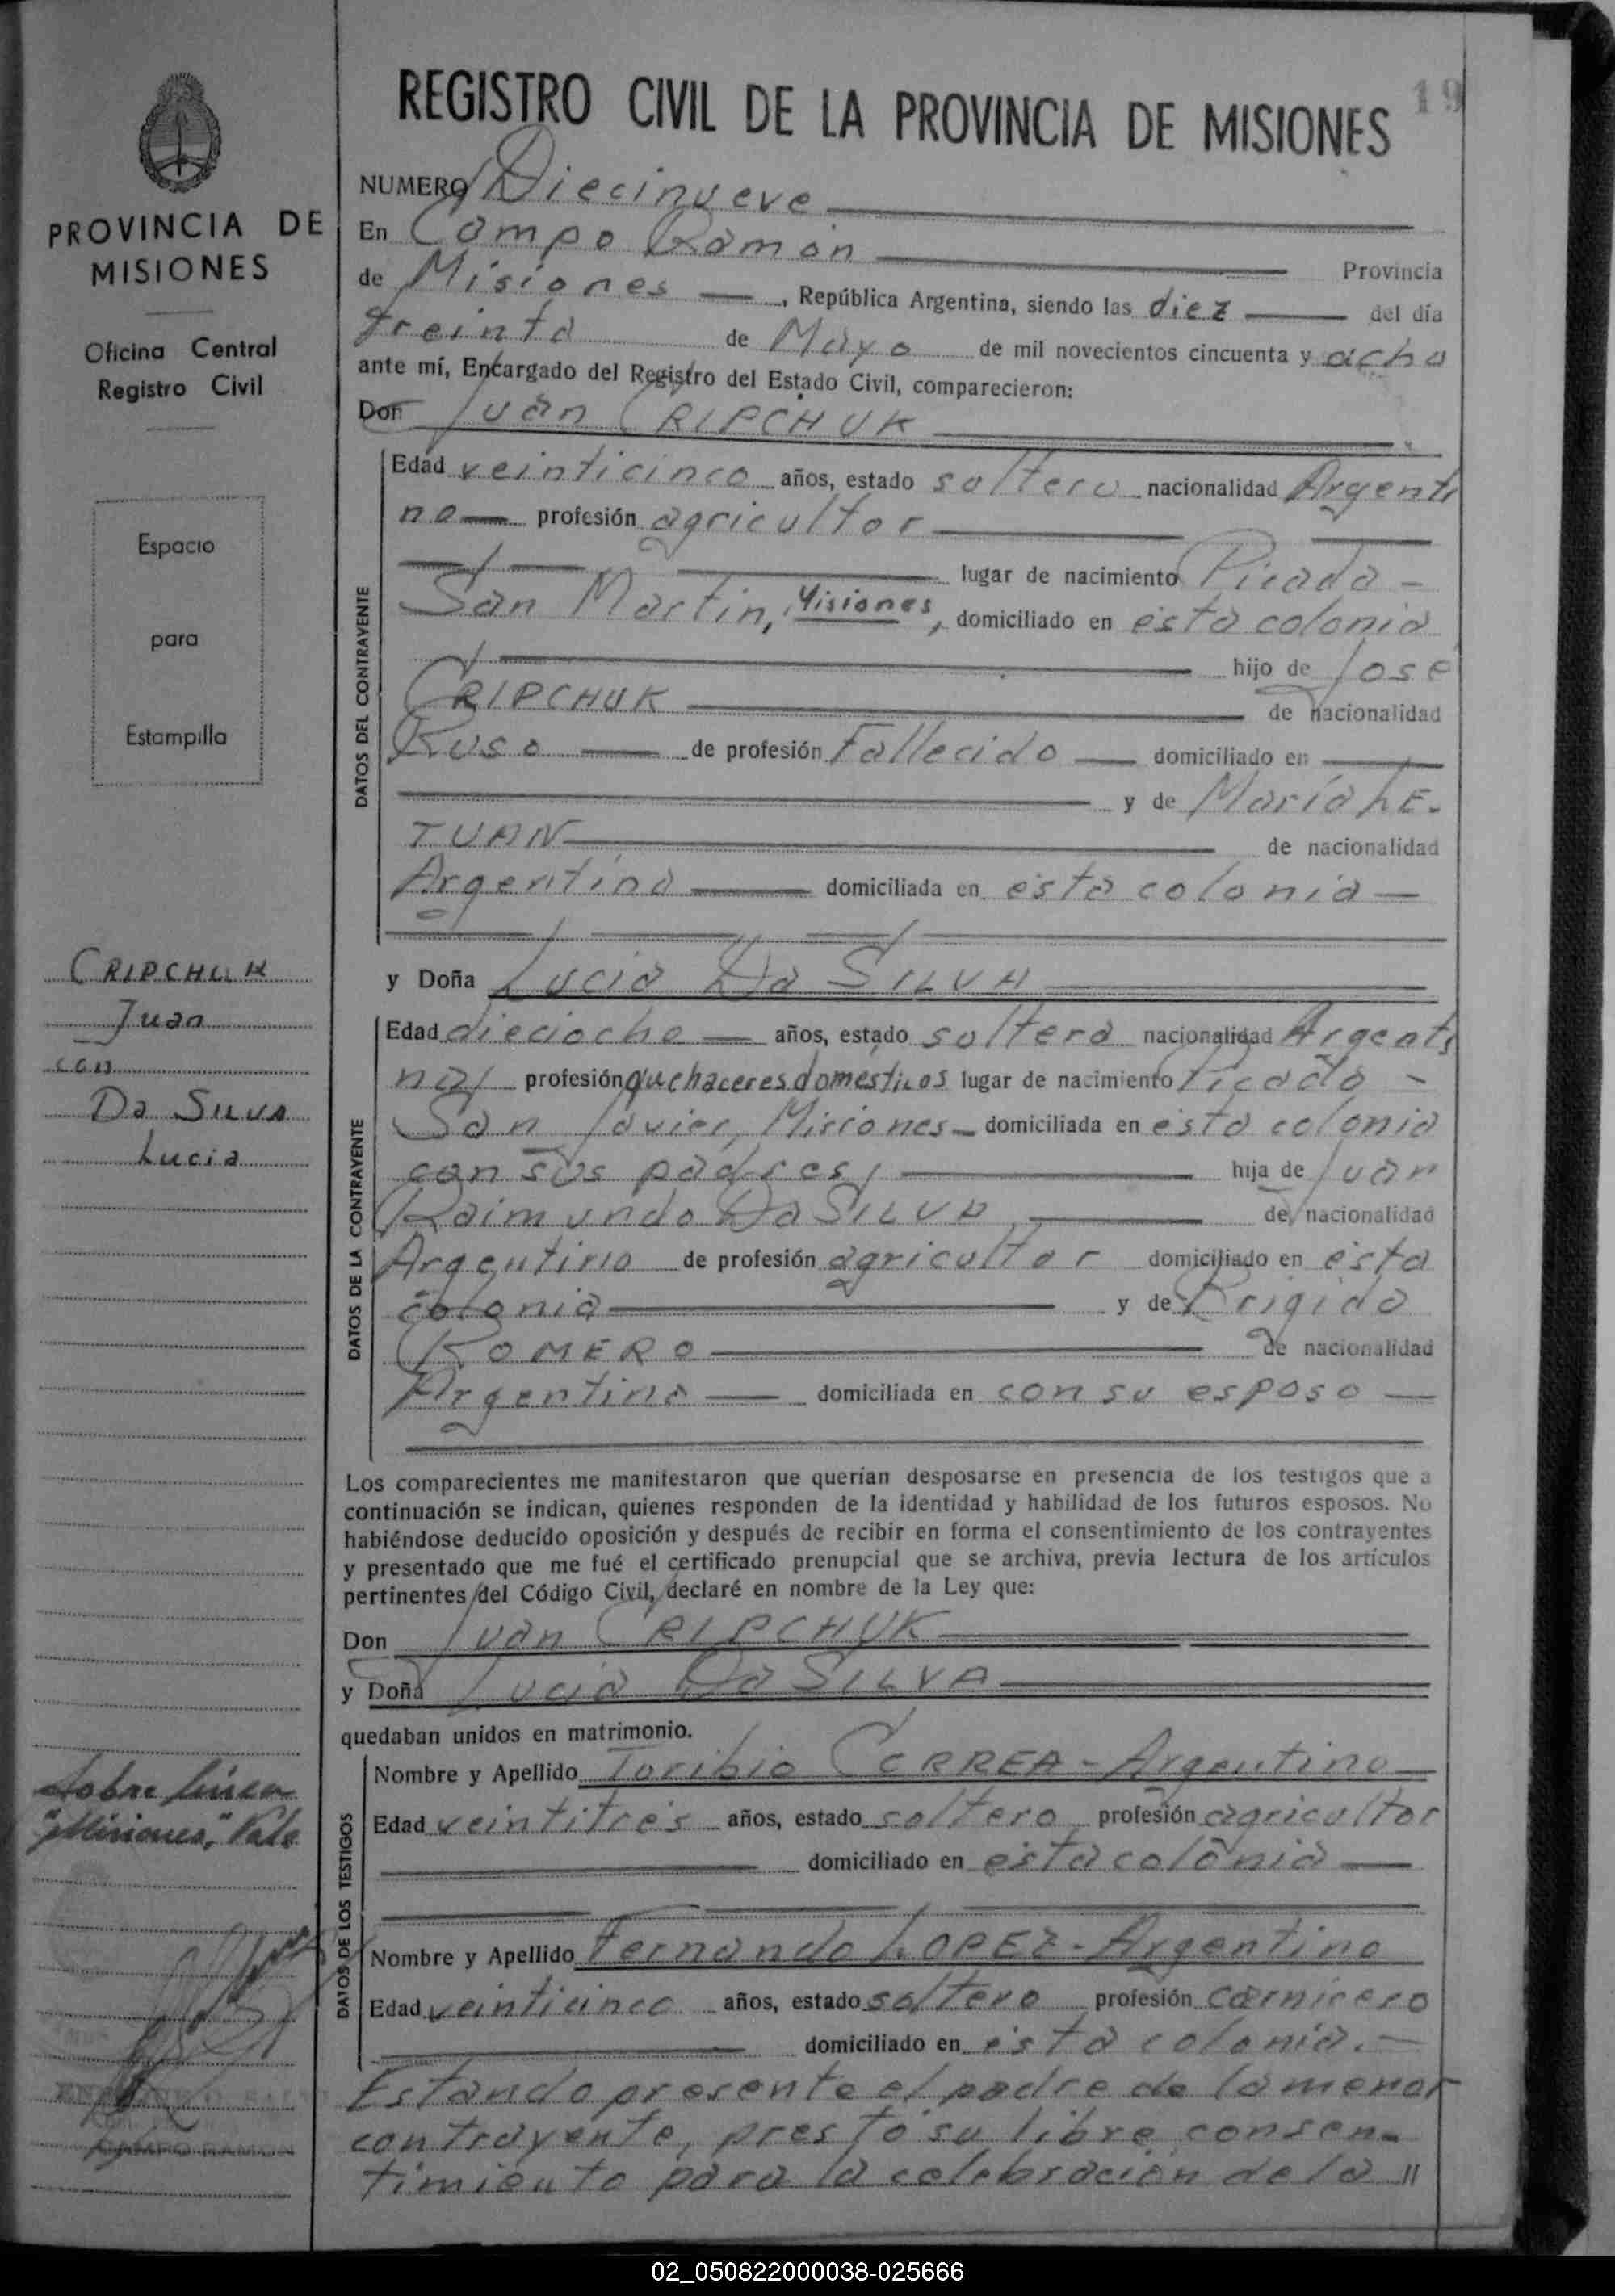 REGISTRO CIVIL DE LA PROVINCIA DE MISIONES
19
PROVINCIA DE
MISIONES
Oficina Central
Registro Civil
Espacio
para
Estampilla
CRIPCHUK
Juan
con
Da SILVA
Lucia
Sobre línea
"Misiones," Vale
CAMPO RAMON
NUMERO Diecinueve
En Campo Ramón Provincia
de Misiones, República Argentina, siendo las diez del día
treinta de Mayo de mil novecientos cincuenta y ocho
ante mí, Encargado del Registro del Estado Civil, comparecieron:
Don Juan CRIPCHUK
DATOS DEL CONTRAYENTE
Edad veinticinco años, estado soltero nacionalidad Argenti
no profesión agricultor
lugar de nacimiento Picada -
San Martin, Misiones, domiciliado en ésta colonia
hijo de José
CRIPCHUK de nacionalidad
Ruso de profesión Fallecido domiciliado en
y de María LE-
TUAN de nacionalidad
Argentina domiciliada en ésta colonia
y Doña Lucia Da SILVA
DATOS DE LA CONTRAYENTE
Edad dieciocho años, estado soltera nacionalidad Argenti
na profesión quehaceres domesticos lugar de nacimiento Picada -
San Javier, Misiones domiciliada en ésta colonia
con sus padres, hija de Juan
Raimundo Da SILVA de nacionalidad
Argentino de profesión agricultor domiciliado en ésta
colonia y de Brigida
ROMERO de nacionalidad
Argentina domiciliada en con su esposo
Los comparecientes me manifestaron que querían desposarse en presencia de los testigos que a
continuación se indican, quienes responden de la identidad y habilidad de los futuros esposos. No
habiéndose deducido oposición y después de recibir en forma el consentimiento de los contrayentes
y presentado que me fué el certificado prenupcial que se archiva, previa lectura de los artículos
pertinentes del Código Civil, declaré en nombre de la Ley que:
Don Juan CRIPCHUK
y Doña Lucia Da SILVA
quedaban unidos en matrimonio.
DATOS DE LOS TESTIGOS
Nombre y Apellido Toribio CORREA - Argentino
Edad veintitres años, estado soltero profesión agricultor
domiciliado en esta colonia
Nombre y Apellido Fernando LOPEZ - Argentino
Edad veinticinco años, estado soltero profesión carnicero
domiciliado en ésta colonia.-
Estando presente el padre de la menor
contrayente, prestó su libre consen-
timiento para la celebración de la "
02_050822000038-025666